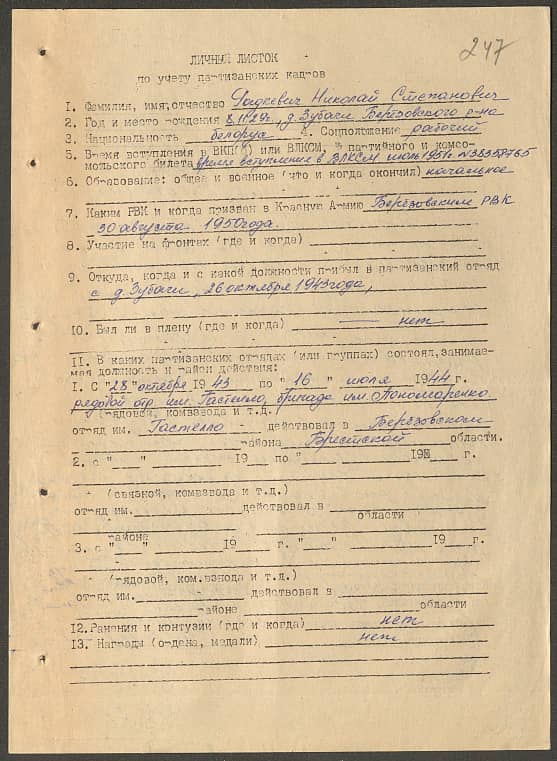 247
ЛИЧНЫЙ ЛИСТОК
по учету партизанских кадров
1. Фамилия, имя, отчество Гацкевич Николай Степанович
2. Год и место рождения д. Зубачи Берёзовского р-на
3. Национальность белорус 4. Соцположение рабочий
5. Время вступления в ВКП(б) или ВЛКСМ, № партийного и комсо-
мольского билета время вступления в ВЛКСМ июль 1951г. №38357765
6. Образование: общее и военное (что и когда окончил) начальное
7. Каким РВК и когда призван в Красную Армию Берёзовским РВК
30 августа 1950 года.
8. Участие на фронтах (где и когда)
9. Откуда, когда и с какой должности прибыл в партизанский отряд
с д. Зубачи, 26 октября 1943 года,
10. Был ли в плену (где и когда) — нет
11. В каких партизанских отрядах (или группах) состоял, занимае-
мая должность и район действия:
1. С "28" октября 1943 по "16" июля 1944 г.
рядовой отр. им. Гастелло, бригада им. Пономаренко
(рядовой, комвзвода и т.д.)
отряд им. Гастелло - действовал в Берёзовском
района Брестской области.
2. с "___" ______ 19__ по "___" ______ 19__ г.
(связной, комвзвода и т.д.)
отряд им.______ действовал в ______
области
района
3. с "___" ______ 19__ г. "___" ______ 19__ г.
(рядовой, ком.взвода и т.д.)
отряд им.______ действовал в ______
районе ______ области
12. Ранения и контузии (где и когда) нет
13. Награды (ордена, медали) нет